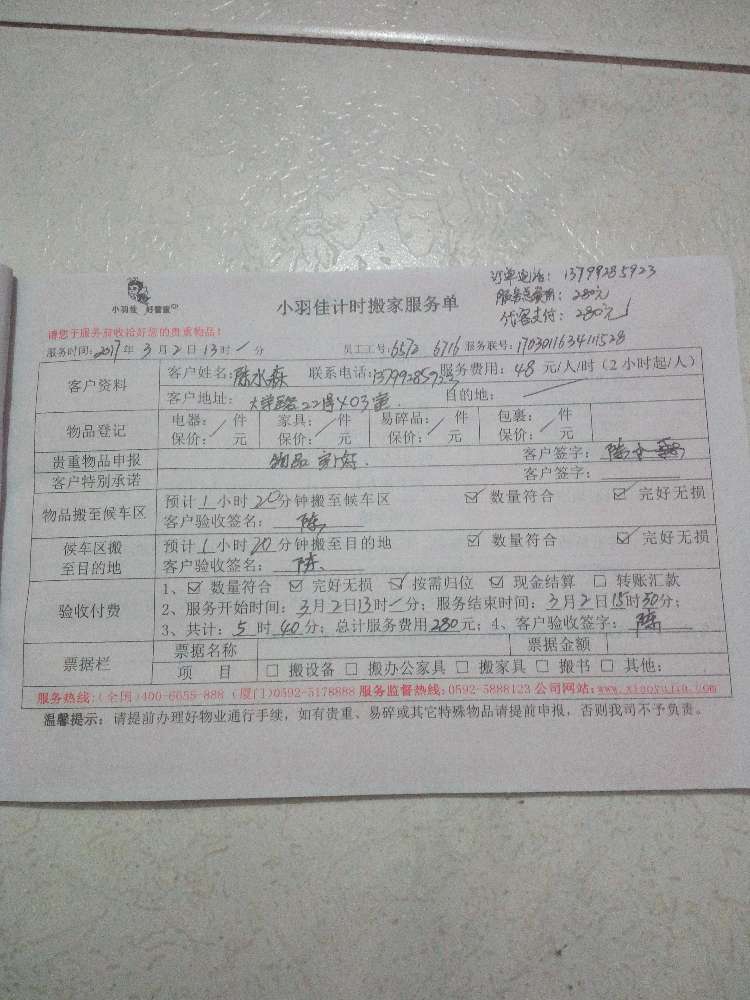 订单电话：13799285923
服务总费用：280元
代客支付：280元
小羽佳 好管家
小羽佳计时搬家服务单
请您于服务前收拾好您的贵重物品！
服务时间：2017年 3月 2日 13时/分 员工工号：6572 6716 服务联号：1703011634111528
客户资料
客户姓名：陈水森 联系电话：13799285923 服务费用：48 元/人/时（2小时起/人）
客户地址： 22号403室 目的地：
物品登记
电器：/件 家具：/件 易碎品：/件 包裹：/件
保价：/元 保价：/元 保价：/元 保价：/元
贵重物品申报 物品 客户签字：陈水森
客户特别承诺 客户签字：
物品搬至候车区
预计1小时20分钟搬至候车区 ☑数量符合 ☑完好无损
客户验收签名：陈
候车区搬至目的地
预计1小时20分钟搬至目的地 ☑数量符合 ☑完好无损
客户验收签名：陈
验收付费
1、☑数量符合 ☑完好无损 ☑按需归位 ☑现金结算 □转账汇款
2、服务开始时间：3月2日13时/分；服务结束时间：3月2日15时30分；
3、共计：5时40分；总计服务费用280元；4、客户验收签字：陈
票据栏
票据名称 票据金额
项 目 □搬设备 □搬办公家具 □搬家具 □搬书 □其他：
服务热线：（全国）400-6055-888（厦门）0592-5178888 服务监督热线：0592-5888123 公司网站：www.xiaoyujia.com
温馨提示：请提前办理好物业通行手续，如有贵重、易碎或其它特殊物品请提前申报，否则我司不予负责。